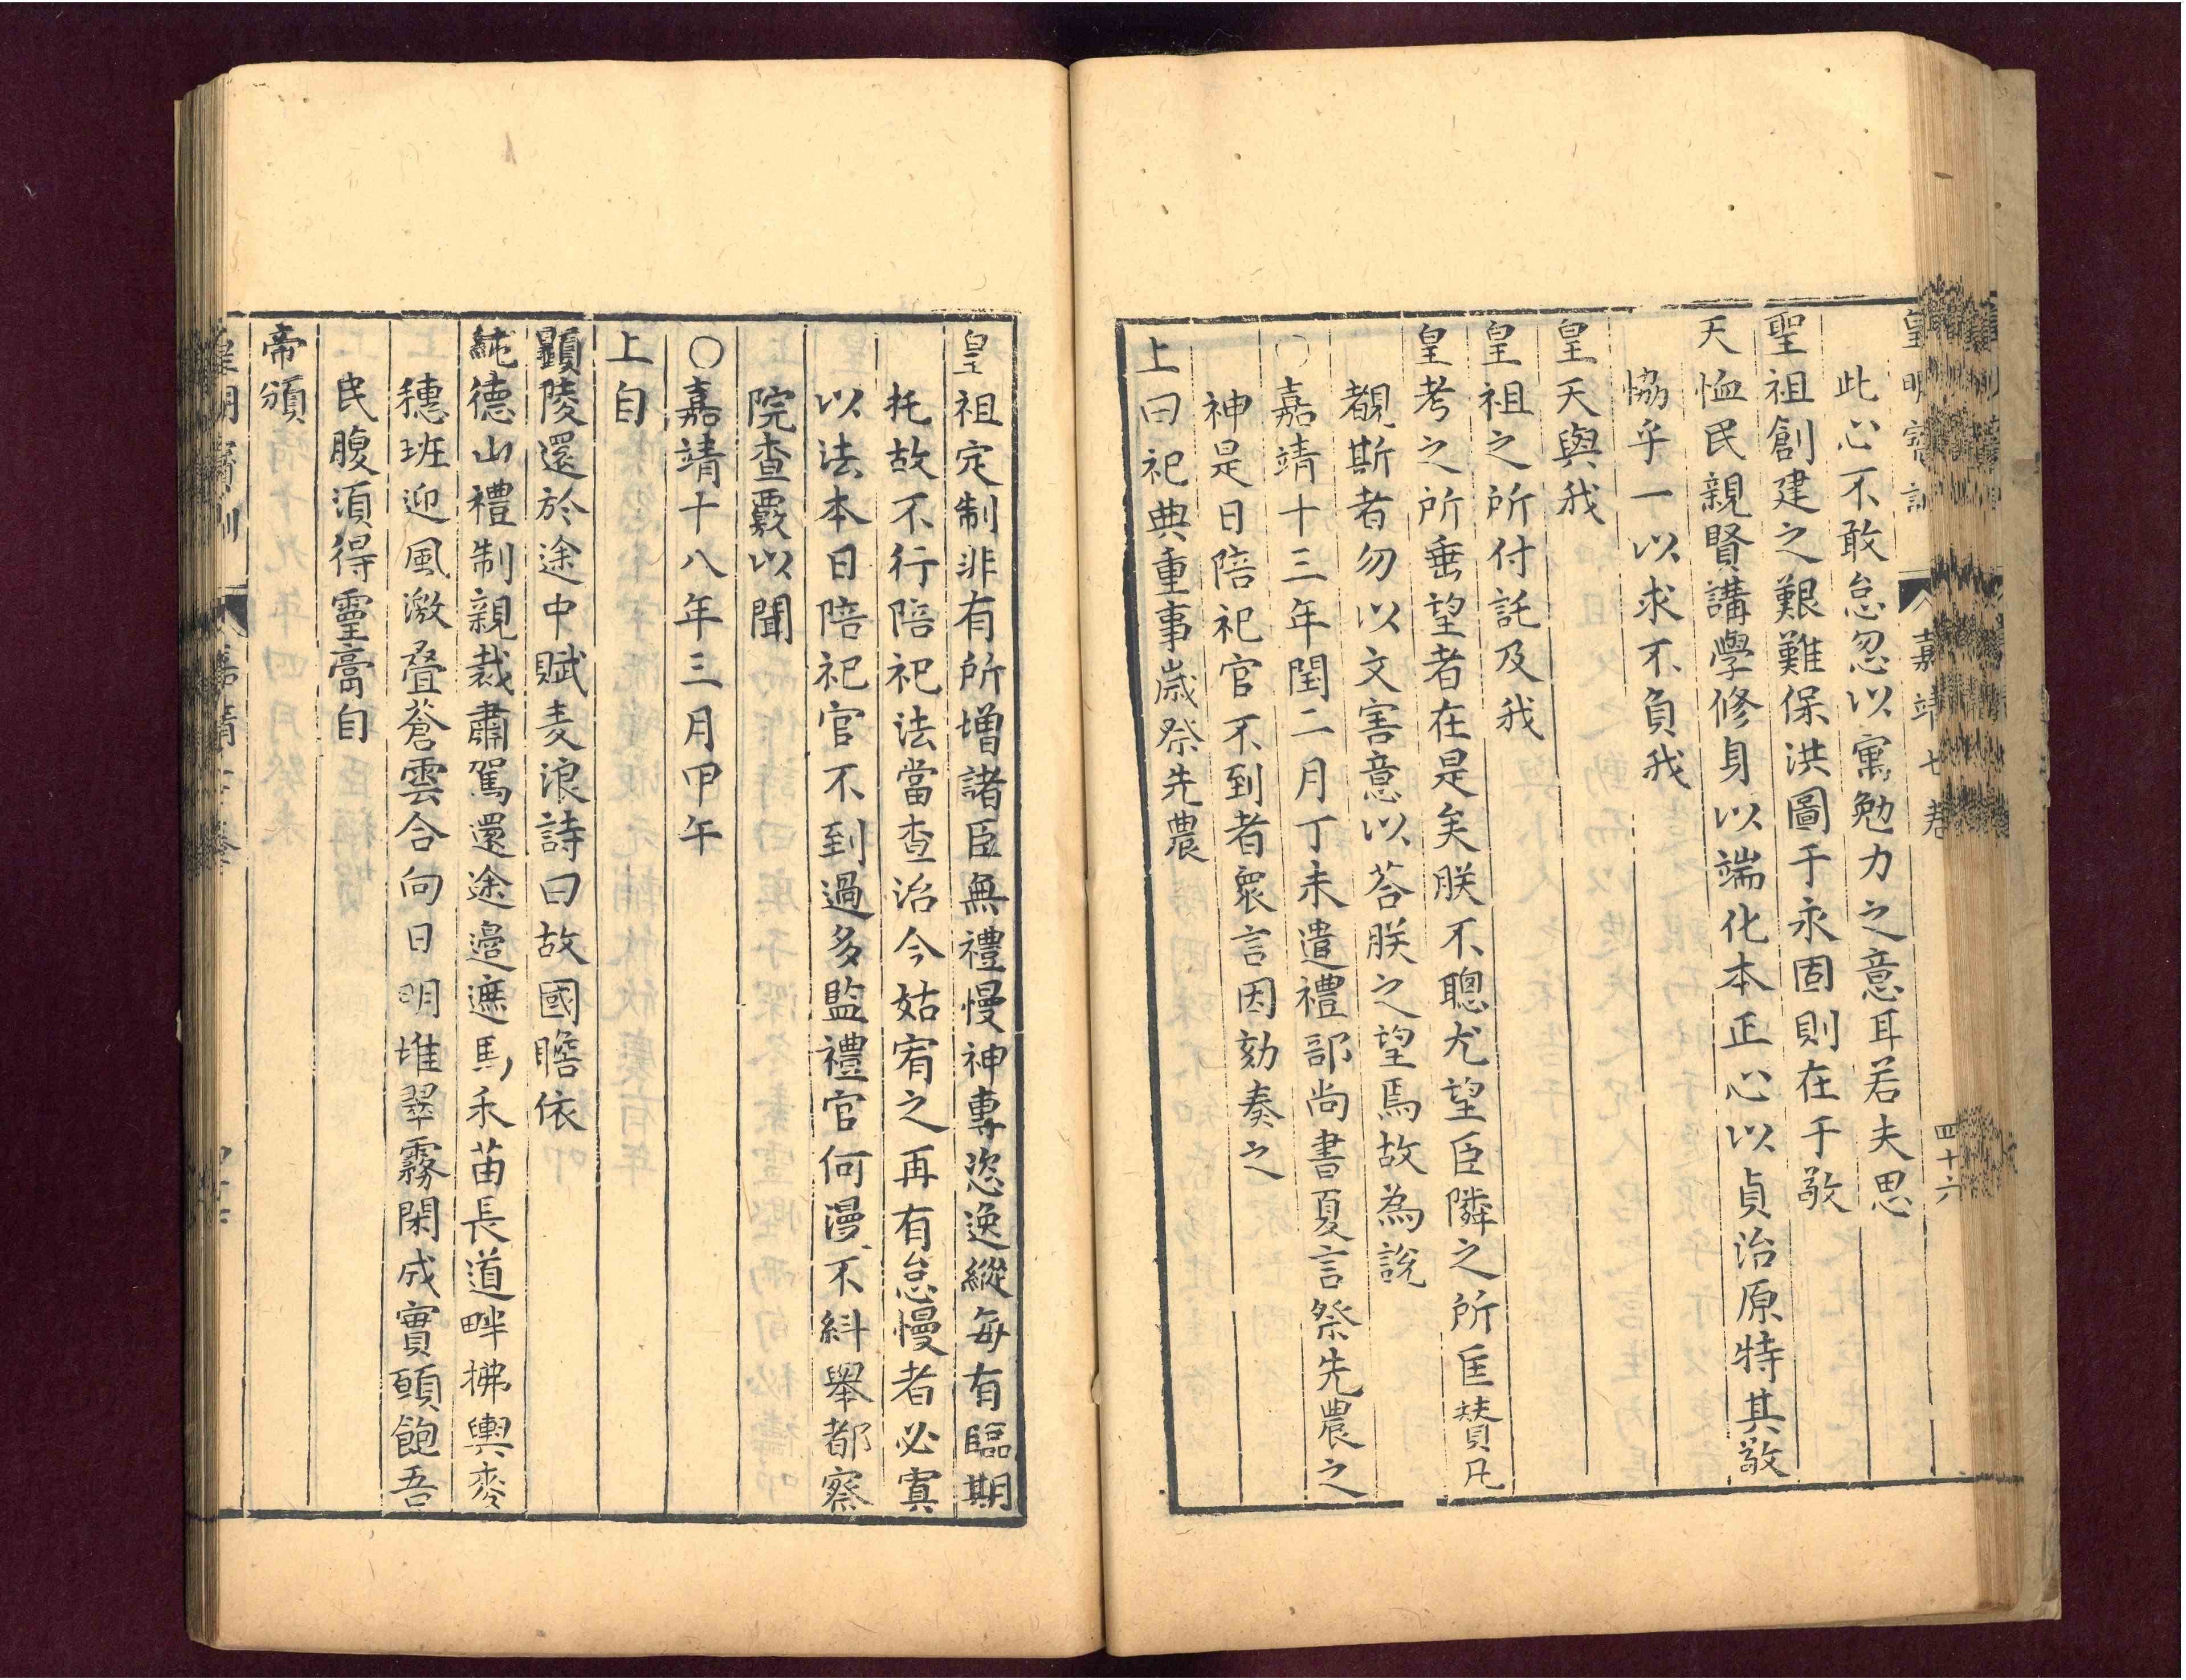 皇明寶訓 嘉靖七卷 四十六
此心不敢怠忽以寓勉力之意耳若夫思
聖祖創建之艱難保洪圖于永固則在于敬
天恤民親賢講學修身以端化本正心以貞治原特其敬
恊乎一以求不負我
皇天與我
皇祖之所付託及我
皇考之所垂望者在是矣朕不聰尤望臣隣之所匡賛凡
覩斯者勿以文害意以荅朕之望焉故為說
○嘉靖十三年閏二月丁未遣禮部尚書夏言祭先農之
神是日陪祀官不到者衆言因劾奏之
上曰祀典重事歲祭先農
皇祖定制非有所增諸臣無禮慢神專恣逸縱每有臨期
托故不行陪祀法當查治今姑宥之再有怠慢者必寘
以法本日陪祀官不到過多監禮官何漫不糾舉都察
院查覈以聞
○嘉靖十八年三月甲午
上自
顯陵還於途中賦麦浪詩曰故國瞻依
純德山禮制親裁肅駕還途邉遮馬禾苗長道畔拂輿麥
穗班迎風激叠蒼雲合向日明堆翠霧閑成實頤飽吾
民腹湏得靈膏自
帝頒
皇明寶訓 嘉靖七卷